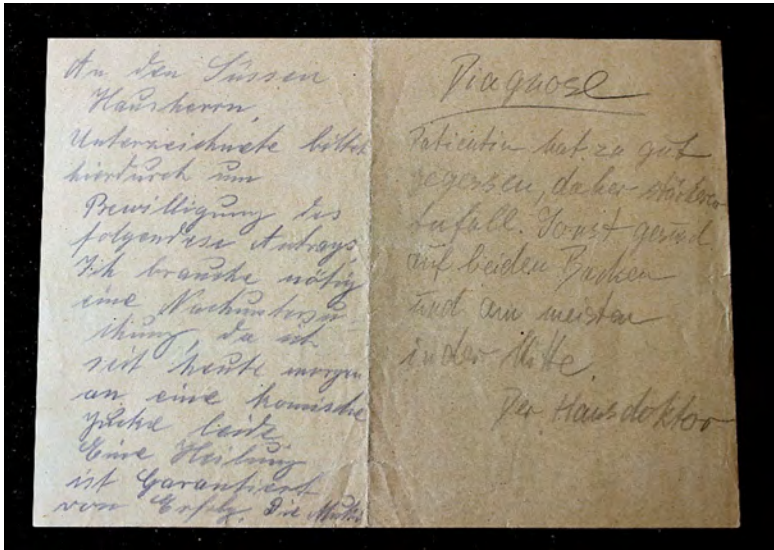 An den Süssen
Hausherrn,
Unterzeichnete bittet
hierdurch um
Bewilligung des
folgendese Antrags,
Ich brauche nötig
eine Nachuntersu-
chung, da ich
seit heute morgen
an eine komische
leide.
Eine Heilung
ist Garantiert
von Erfolg. Die
Diagnose
Patientin hat zu gut
gegessen, daher
Anfall. Sonst gesund
auf beiden Backen
und am meisten
in der Mitte.
Der Hausdoktor